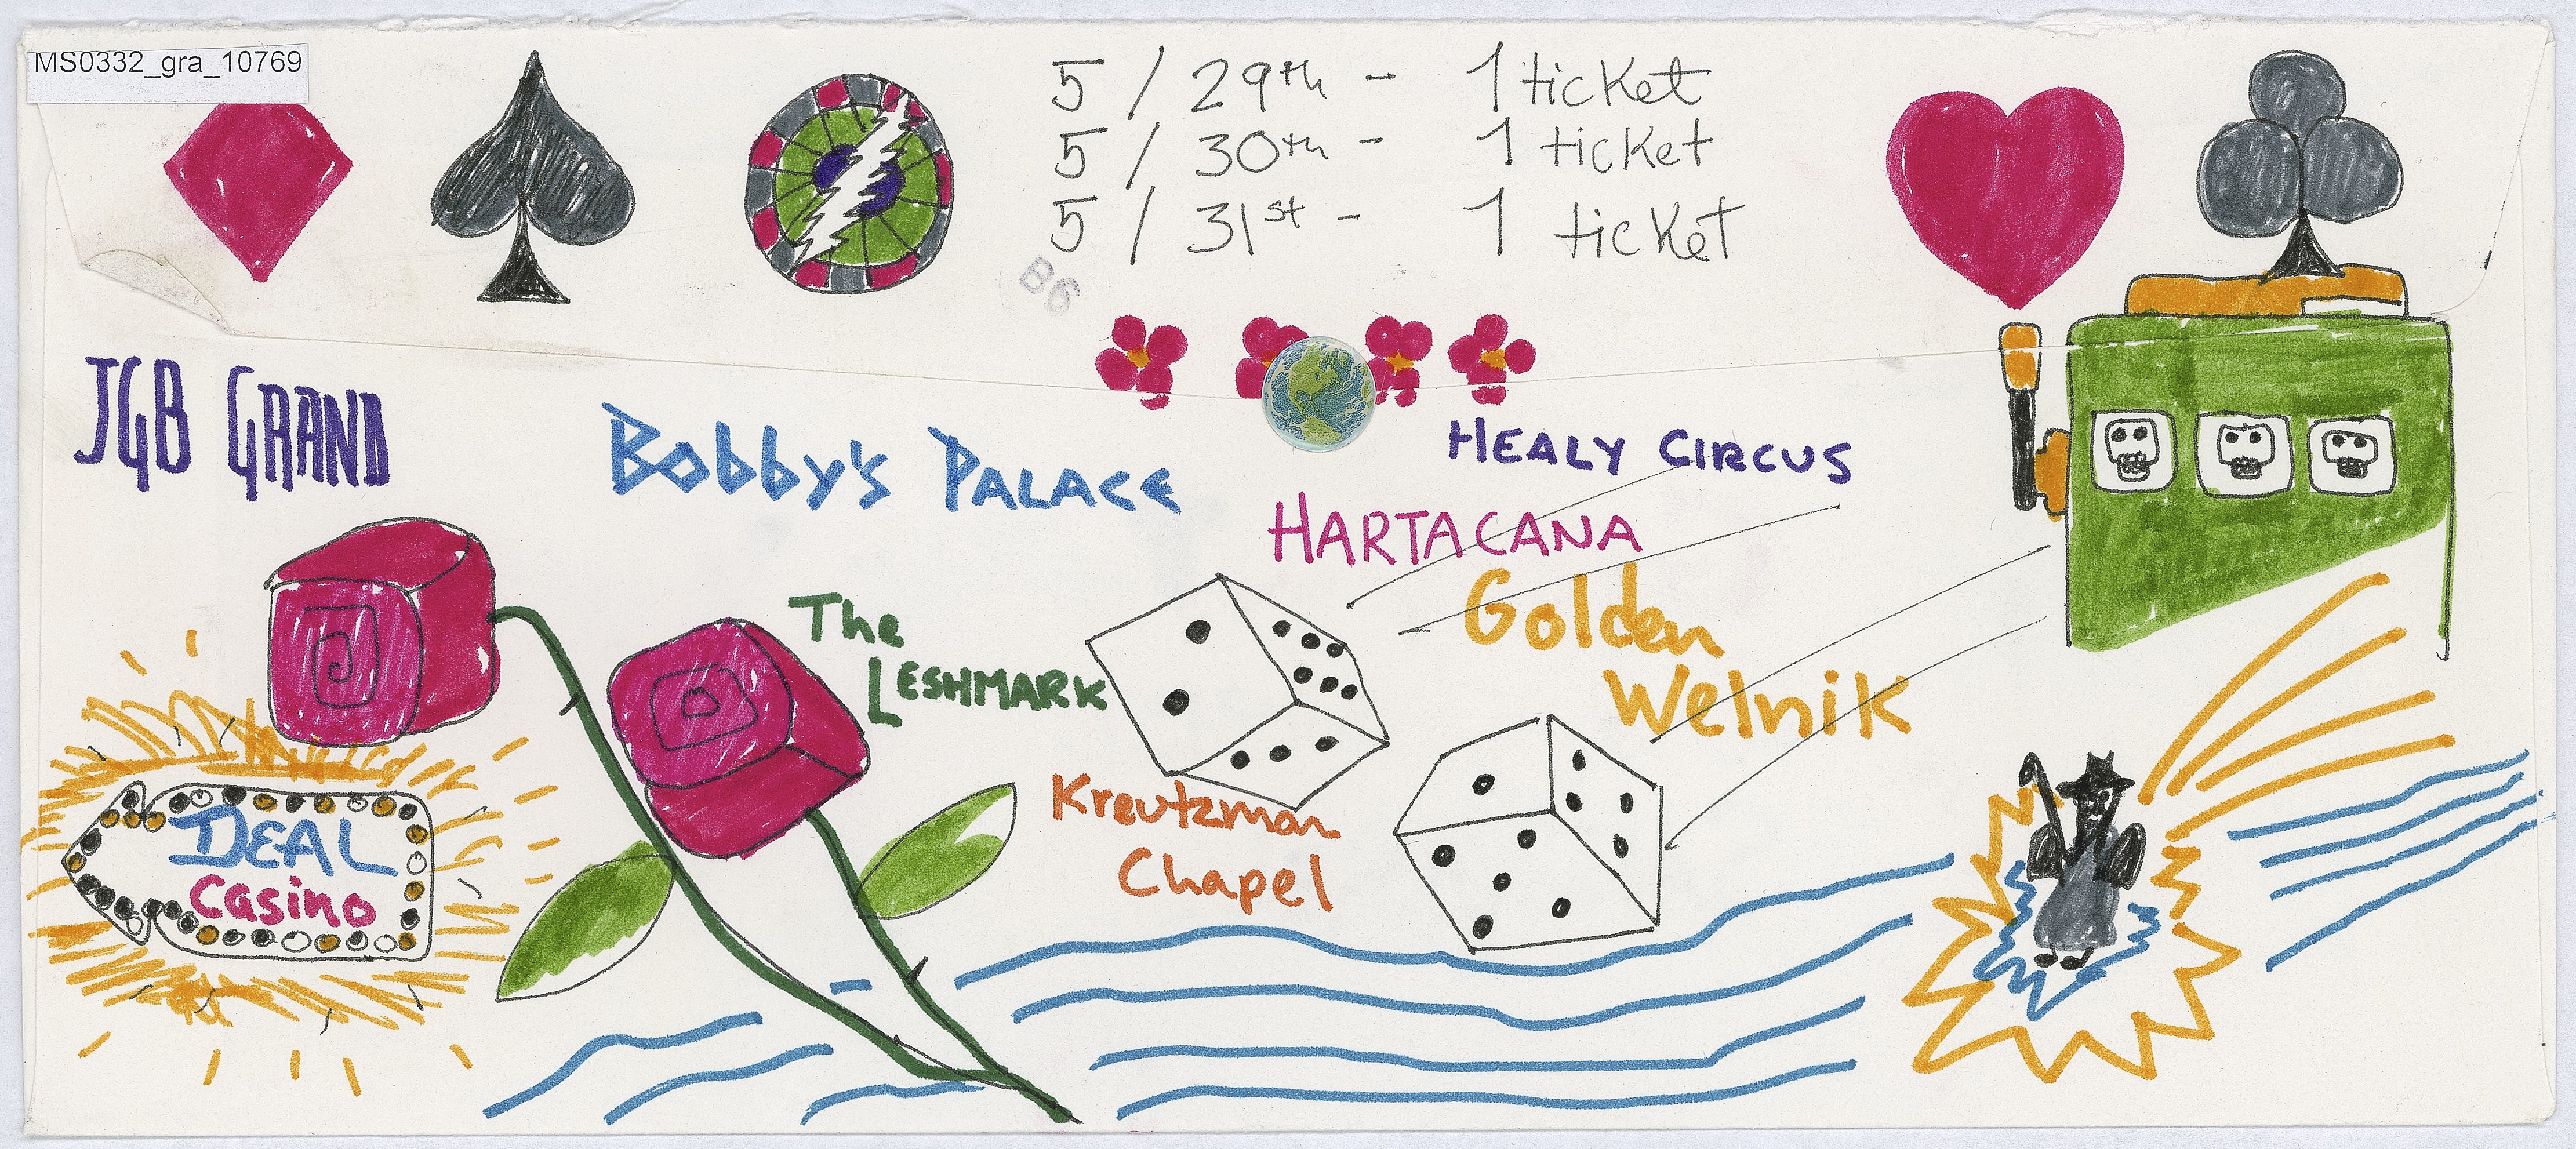 MS0332_gra_10769
5 / 29th - 1 ticket
5 / 30th - 1 ticket
5 / 31st - 1 ticket
B6
JGB GRAND
Bobby's PALACE
HEALY CIRCUS
HARTACANA
Golden
Welnik
The
LESHMARK
Kreutzman
Chapel
DEAL
Casino